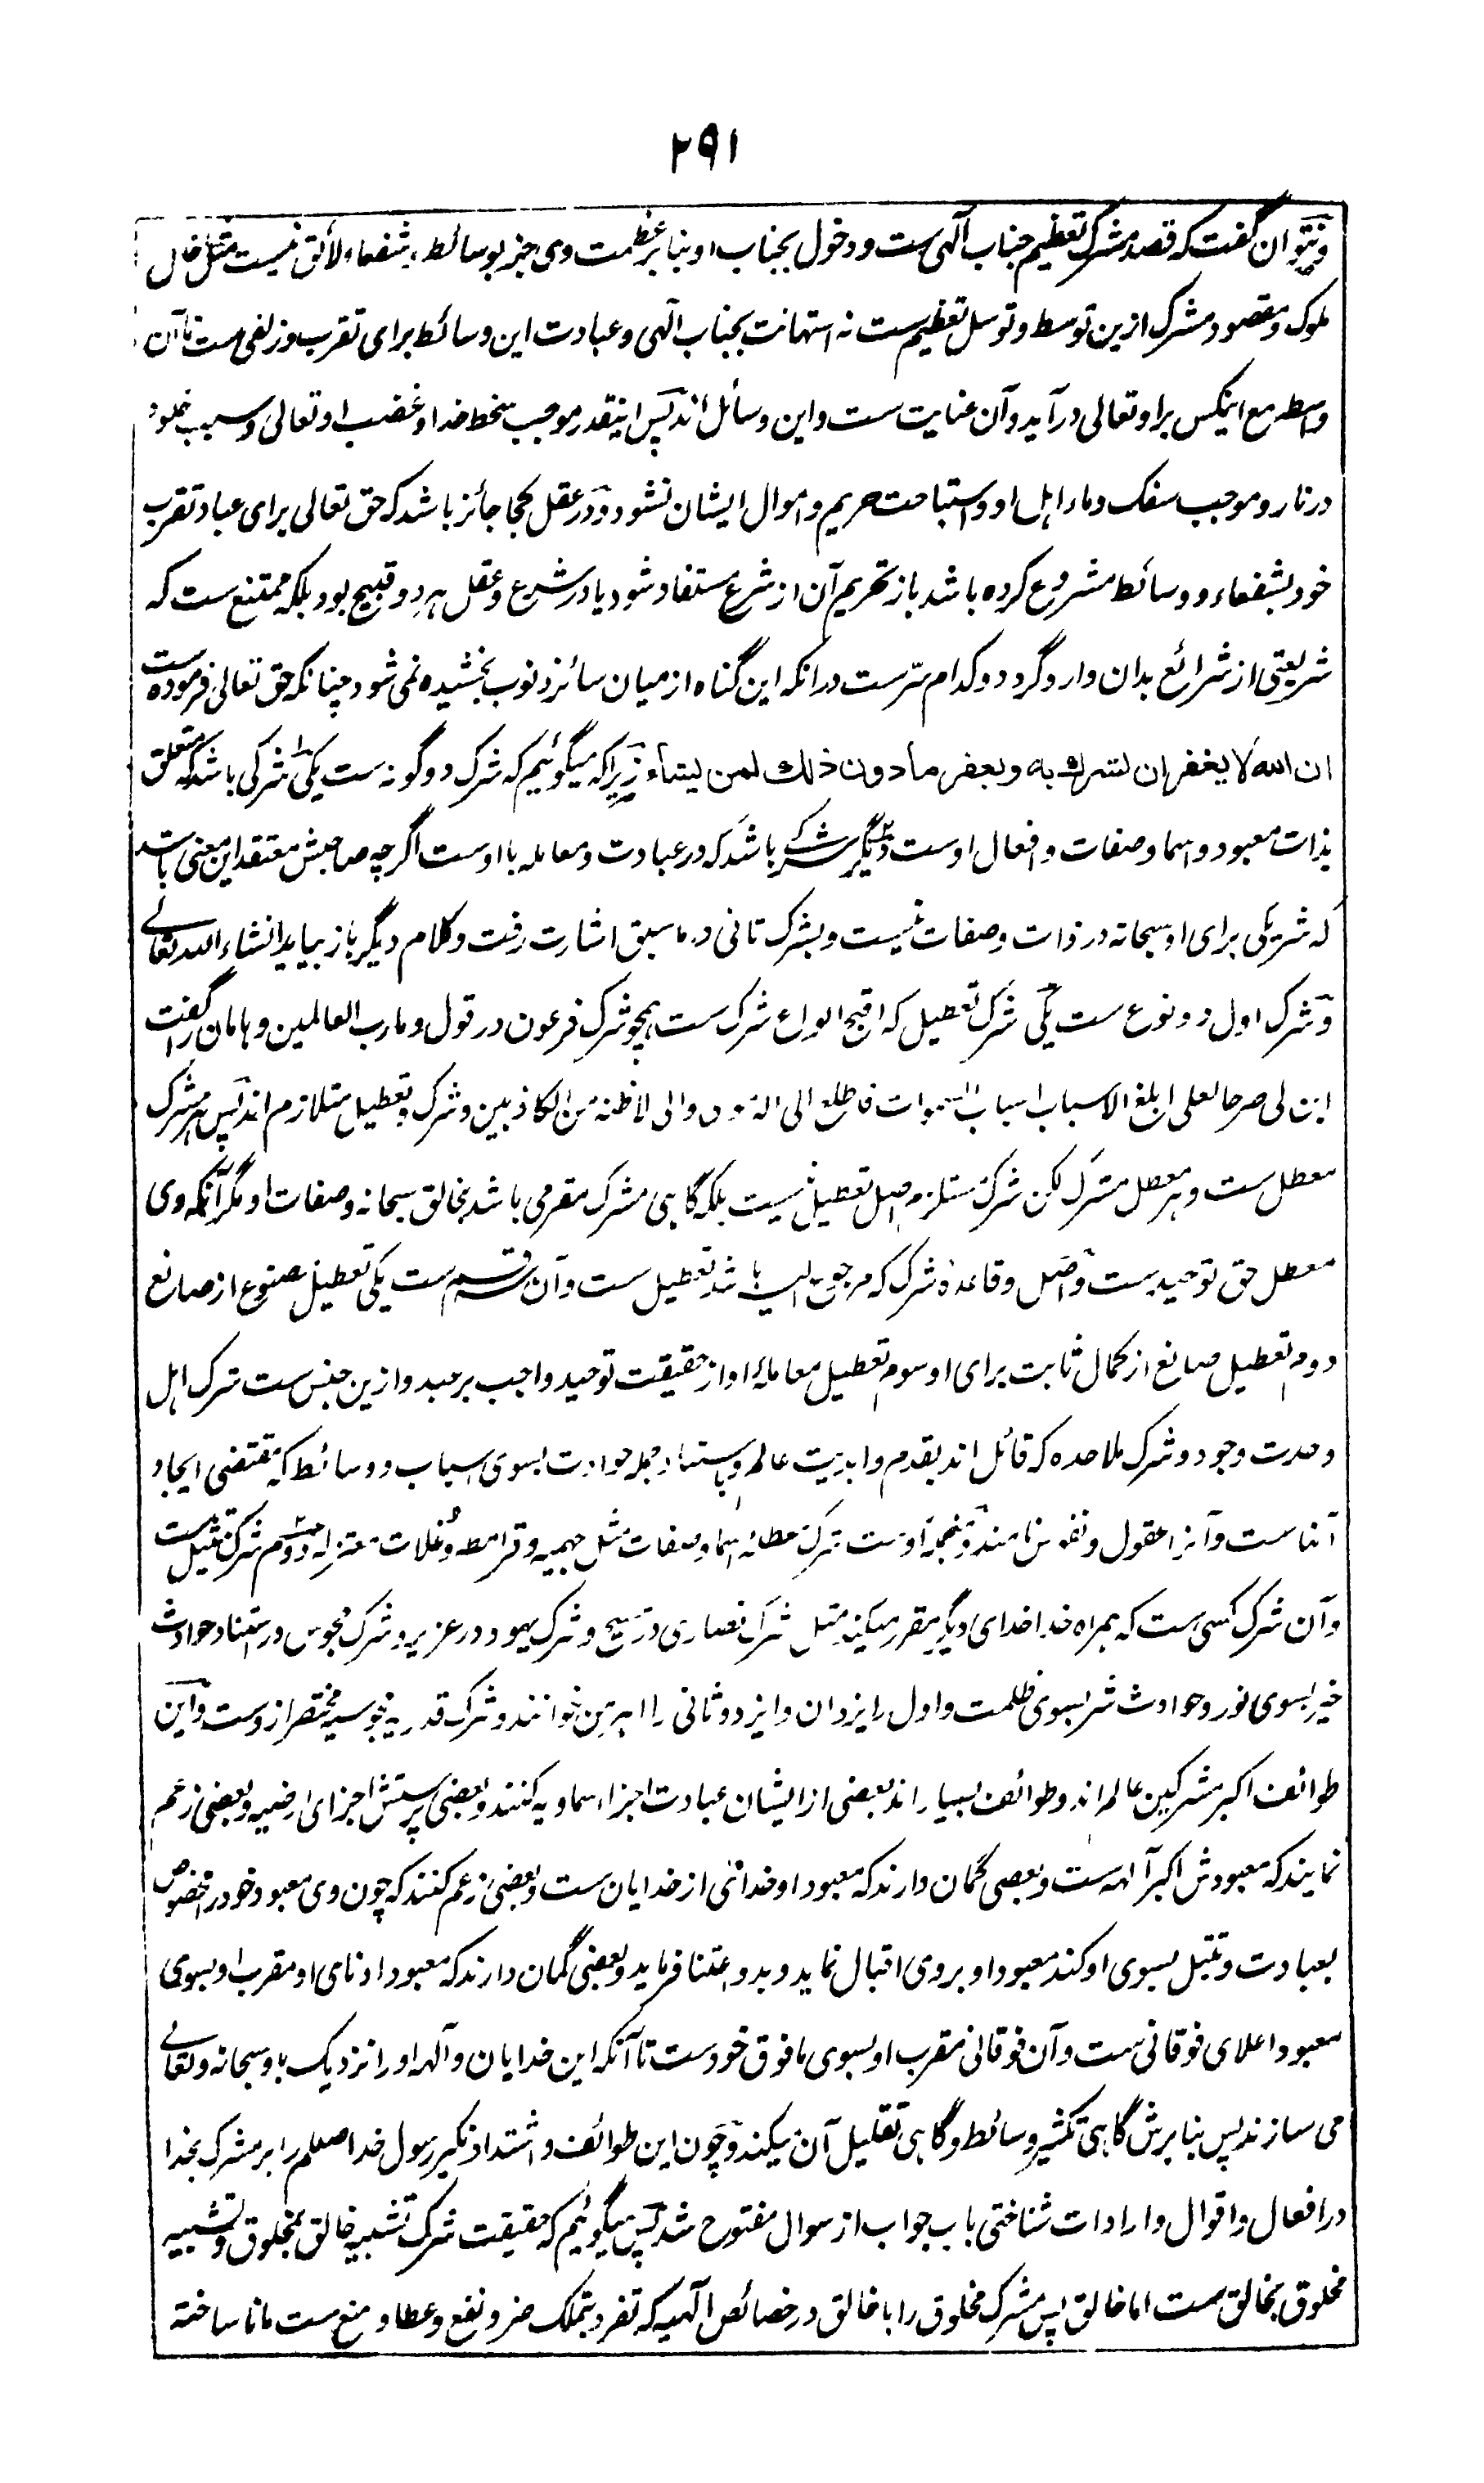 ۲۹۱
و نتوان گفت که قصد مشرک تعظیم جناب آلهی ست و دخول بجناب او بنا بر عظمت وی جز بوسائط و شفعاء لائق نیست مثل حال
ملوک و مقصود مشرک ازین توسط و توسل تعظیم ست نه استهانت بجناب آلهی و عبادت این وسائط برای تقرب و زلفی ست تا آن
واسطه مع اینکس براو تعالی در آید و آن عنایت ست و این وسائل اند پس اینقدر موجب سخط خدا و غضب او تعالی و سبب خلود
در نار و موجب سفک دماء اهل او و استباحت حریم و اموال ایشان نشود و در عقل کجا جائز باشد که حق تعالی برای عباد تقرب
خود بشفعاء و وسائط مشروع کرده باشد باز تحریم آن از شرع مستفاد شود یا در شرع و عقل هر دو قبیح بود بلکه ممتنع ست که
شریعتی از شرائع بدان وارد گردد و کدام سرّ ست در انکه این گناه از میان سائر ذنوب بخشیده نمی شود چنانکه حق تعالی فرموده ست
ان الله لا یغفر ان یشرک به و یغفر ما دون ذلک لمن یشاء زیرا که میگوئیم که شرک دو گونه ست یکی شرکی باشد که متعلق
بذات معبود و اسما و صفات و افعال اوست و دیگر شرک باشد که در عبادت و معامله با اوست اگرچه صاحبش معتقد این معنی باشد
که شریکی برای او سبحانه در ذات و صفات نیست و بشرک ثانی در ما سبق اشارت رفت و کلام دیگر باز بیاید انشاء الله تعالے
و شرک اول دو نوع ست یکی شرک تعطیل که اقبح انواع شرک ست همچو شرک فرعون در قول و ما رب العالمین و هامان را گفت
ابن لی صرحا لعلی ابلغ الاسباب اسباب السموات فاطلع الی اله موسی و انی لاظنه من الکاذبین و شرک و تعطیل متلازم اند پس هر مشرک
معطل ست و هر معطل مشرک لکن شرک مستلزم اصل تعطیل نیست بلکه گاهی مشرک مقر می باشد بخالق سبحانه و صفات او مگر آنکه وی
معطل حق توحید ست و اصل و قاعدهٔ شرک که مرجوع الیها باشد تعطیل ست و آن سه قسم ست یکی تعطیل مصنوع از صانع
دوم تعطیل صانع از کمال ثابت برای او سوم تعطیل معاملهٔ او از حقیقت توحید واجب بر عبد و ازین جنس ست شرک اهل
وحدت وجود و شرک ملاحده که قائل اند بقدم و ابدیت عالم و باستناد جمله حوادث بسوی اسباب و وسائط که مقتضی ایجاد
آنها ست و آنرا عقول و نفوس نامند و منجملهٔ اوست شرک معطلهٔ اسما و صفات مثل جهمیه و قرامطه و غلات معتزله دوم شرک تمثیل ست
و آن شرک کسی ست که همراه خدا خدای دیگر مقرر میکند مثل شرک نصاری در مسیح و شرک یهود در عزیر و شرک مجوس در استناد حوادث
خیر بسوی نور و حوادث شر بسوی ظلمت و اول را یزدان و ایزد و ثانی را اهرمن خوانند و شرک قدریه مجوسیه مختصر ازوست و این
طوائف اکبر مشرکین عالم اند و طوائف بسیار اند بعضی از ایشان عبادت اجزاء سماویه کنند و بعضی پرستش اجزای ارضیه و بعضی زعم
نمایند که معبودش اکبر آلهه ست و بعضی گمان دارند که معبود او خدائی از خدایان ست و بعضی زعم کنند که چون وی معبود خود را مخصوص
بعبادت و تبتل بسوی او کند معبود او بروی اقبال نماید و بدو اعتنا فرماید و بعضی گمان دارند که معبود ادنای او مقرب او بسوی
معبود اعلای فوقانی ست و آن فوقانی مقرب او بسوی ما فوق خود ست تا آنکه این خدایان و آلهه او را نزدیک باو سبحانه و تعالے
می سازند پس بنا برش گاهی تکثیر وسائط و گاهی تقلیل آن میکند و چون این طوائف و اشتداد نکیر رسول خدا صلعم را بر مشرک بخدا
در افعال و اقوال و ارادات شناختی باب جواب از سوال مفتوح شد پس میگوئیم که حقیقت شرک تشبیه خالق بمخلوق و تشبیه
مخلوق بخالق ست اما خالق پس مشرک مخلوق را با خالق در خصائص آلهیه که تفرد بتملک ضر و نفع و عطا و منع ست مانا ساخته